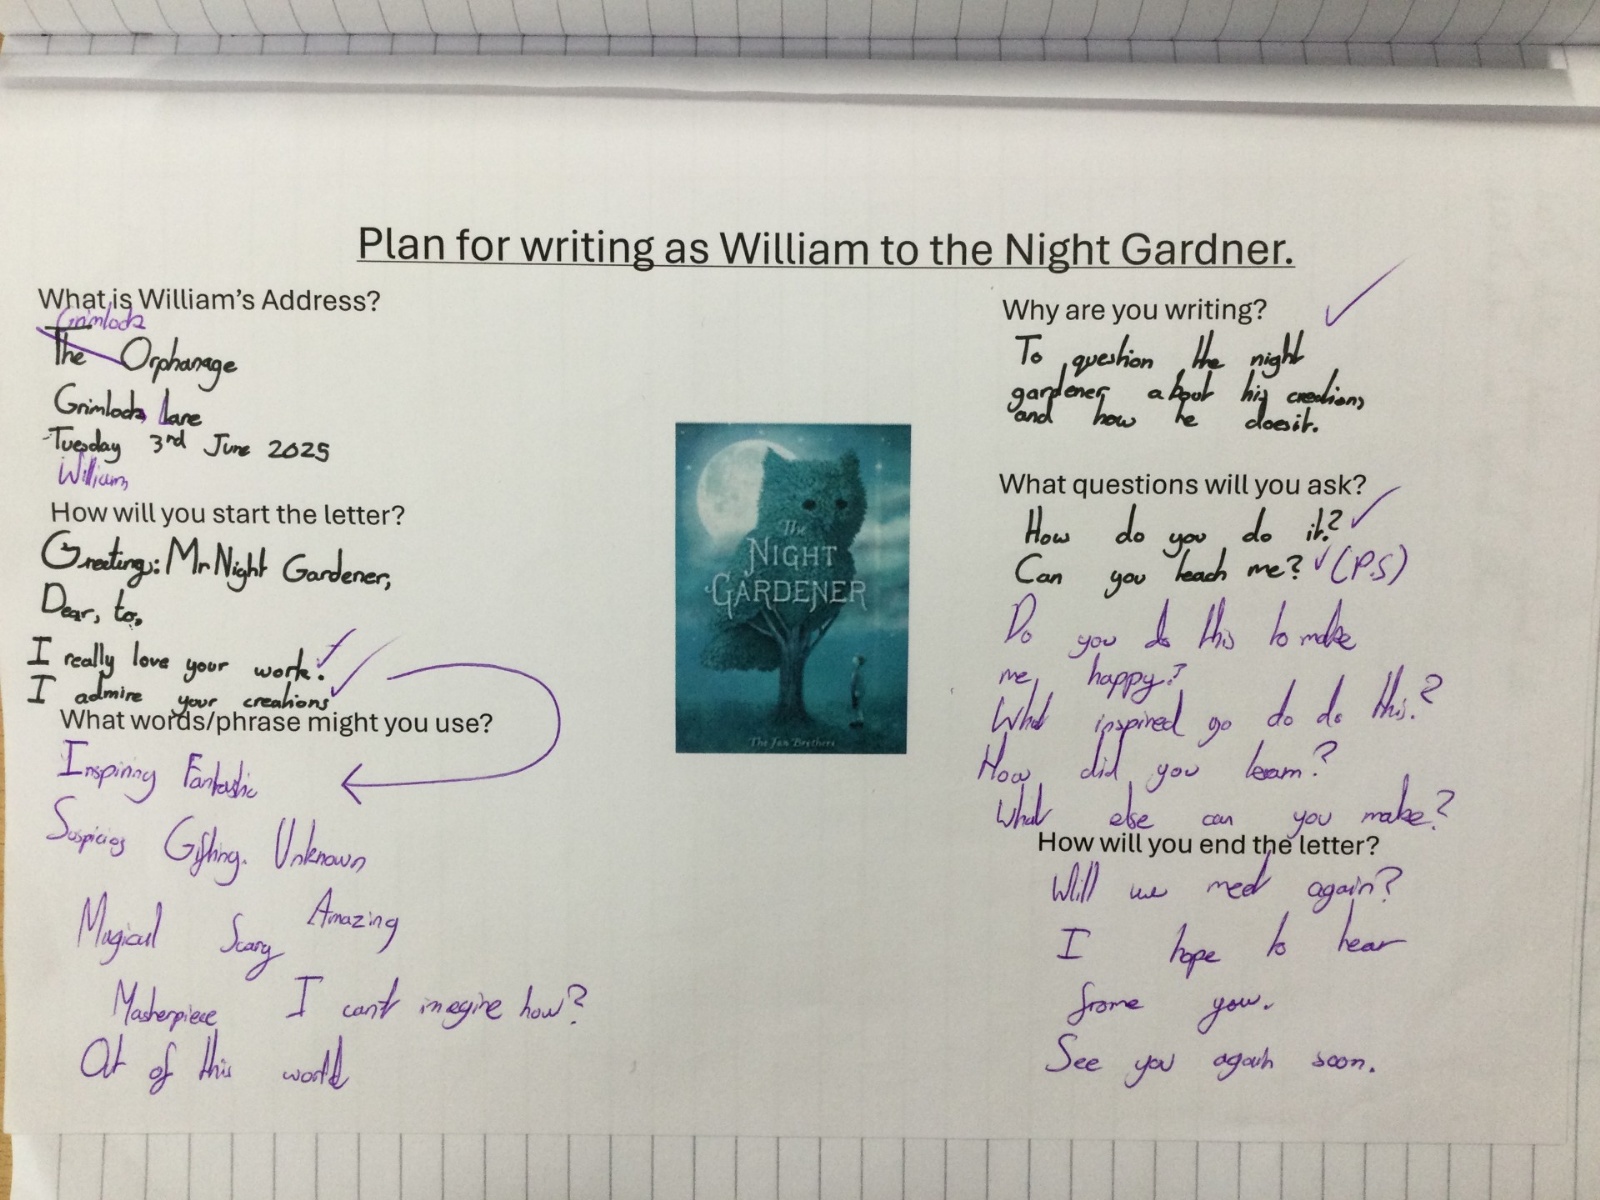 Plan for writing as William to the Night Gardner.
What is William's Address?
Grimlock
The Orphanage
Grimlock, Lane
Tuesday 3rd June 2025
William,
How will you start the letter?
Greeting: Mr Night Gardener,
Dear, to,
I really love your work.
I admire your creations
What words/phrase might you use?
Inspiring Fantastic
Suspicios Gifting. Unknown
Magical Scary Amazing
Masterpiece I can't imagine how?
Out of this world
The
NIGHT
GARDENER
The Fan Brothers
Why are you writing?
To question the night
gardener about his creations
and how he does it.
What questions will you ask?
How do you do it?
Can you teach me? (P.S)
Do you do this to make
me happy?
What inspired yo do do this?
How did you learn?
What else can you make?
How will you end the letter?
Will we meet again?
I hope to hear
frome you.
See you again soon.